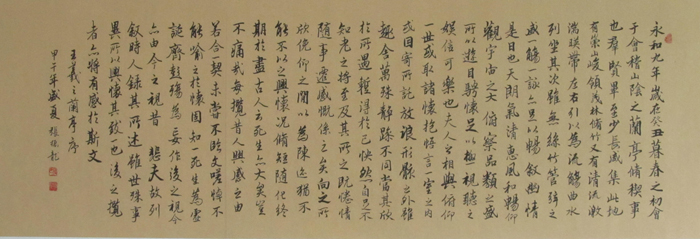 永和九年歲在癸丑暮春之初會
于會稽山陰之蘭亭脩稧事
也群賢畢至少長咸集此地
有崇山峻領茂林脩竹又有清流激
湍暎帶左右引以為流觴曲水
列坐其次雖無絲竹管弦之
盛一觴一詠亦足以暢敘幽情
是日也天朗氣清惠風和暢仰
觀宇宙之大俯察品類之盛
所以遊目騁懷足以極視聽之
娛信可樂也夫人之相與俯仰
一世或取諸懷抱悟言一室之內
或因寄所託放浪形骸之外雖
趣舍萬殊靜躁不同當其欣
於所遇暫得於己快然自足不
知老之將至及其所之既惓情
隨事遷感慨係之矣向之所
欣俛仰之間以為陳迹猶不
能不以之興懷況脩短隨化終
期於盡古人云死生亦大矣豈
不痛哉每攬昔人興感之由
若合一契未嘗不臨文嗟悼不
能喻之於懷固知一死生為虛
誕齊彭殤為妄作後之視今
亦由今之視昔 悲夫故列
敘時人錄其所述雖世殊事
異所以興懷其致一也後之攬
者亦將有感於斯文
王羲之蘭亭序
甲午年盛夏